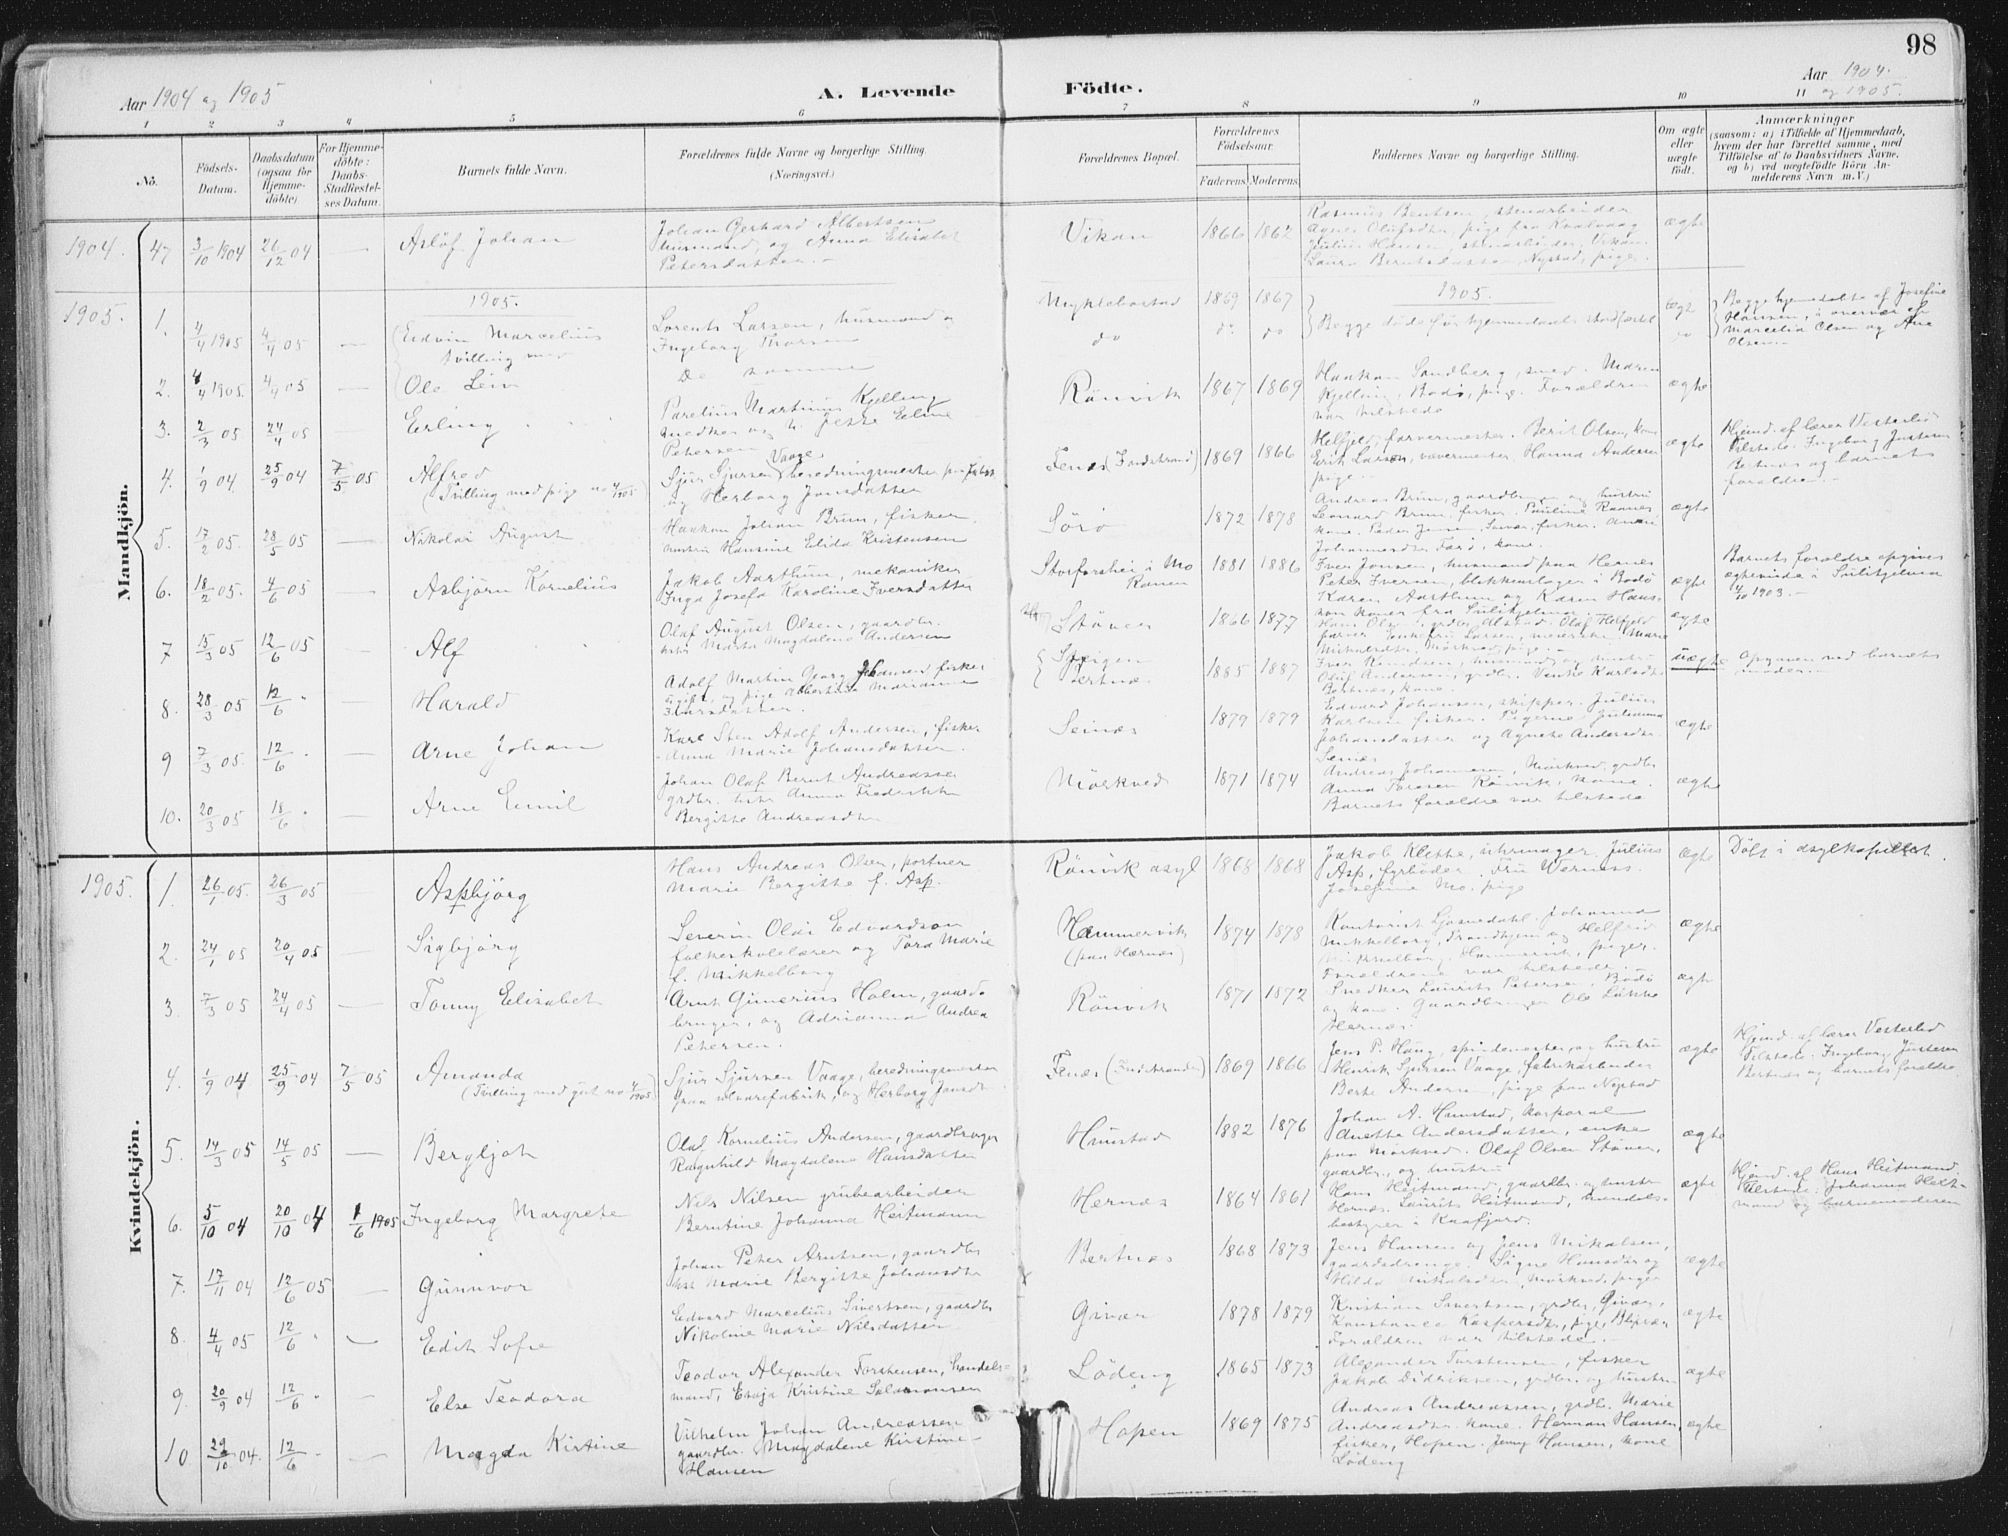 98
Aar 1904 og 1905
A. Levende Födte.
Aar 1904. og 1905.
1 2 3 4 5 6 7 8 9 10 11
No.
Födsels-Datum.
Daabsdatum (ogsaa for Hjemme-döbte)
For Hjemme-döbte: Daabs-Stadfestel-ses Datum.
Barnets fulde Navn.
Forældrenes fulde Navne og borgerlige Stilling. (Næringsvei.)
Forældrenes Bopæl.
Forældrenes Födselsaar.
Faderens. Moderens.
Faddernes Navne og borgerlige Stilling.
Om ægte eller uægte födt.
Anmærkninger
(saasom: a) i Tilfælde af Hjemmedaab, hvem der har forrettet samme, med Tilföielse af to Daabsvidners Navne, og b) ved uægtefödte Börn An-melderens Navn m. V.)
Mandkjön.
1904. 47 3/10 1904 26/12 04 — Aslöf Johan
Johan Gerhard Albertsen
husmand, og Anna Elisabet
Petersdatter. —
Vikan 1866 1862
Rasmus Bentsen, stenarbeider
Agnes Olufsdtr, pige fra Kvalvaag
Julius Hansen, stenarbeider, Vikan
Laura Berntsdatter, Nystad, pige.
ægte
1905. 1905. 1905.
1. 4/4 1905 4/4 05 — Edvin Marcelius
tvilling med
Lorents Larsen, husmand og
Ingeborg Thorsen
Myklebostad 1869 1867
Begge döde før hjemmedaabs stadfæstel
ægte
Begge hjemmedøbte af Josefine
Hansen, i overvær af
Marcelia Olsen og Ane
Olsen. —
2. 4/4 1905. 4/4 05 — Ole Lein
De samme
do do do do
3. 2/3 05 24/4 05 — Erling
Parelius Martinus Kjelling
snedker og h. Jette Eline
Petersen
Rönvik 1867 1869
Haakon Sandberg, smed. Maren
Kjelling, Bodö, pige. Forældren
var tilstede
ægte
4. 1/9 04. 25/9 04 7/5 05 Alfred
(Tvilling med pige no 4/1905)
Sjur Sjursen Vaage, beredningsmester
og Herborg Jonsdatter
Fenes (Findstrand) 1869 1866
Helfjeld, farvermester. Berit Olsen, kone
Erik Larsen, vævermester. Hanna Andersen
pige.
ægte
Hjemd. af lærer Vesterlid
Tilstede: Ingeborg Justesen
Bertnes og barnets
forældre. —
5. 17/2 05. 28/5 05 — Nikolai August
Haakon Johan Brun, fisker
hustru Hansine Elida Kristensen
Sörö 1872 1878
Andreas Brun, gaardbr og hustru
Leonard Brun, fisker. Pauline Raanes,
ægte
6. 18/2 05. 4/6 05 — Asbjörn Kornelius
Jakob Aarthun, mekaniker
Inga Josefa Karoline Iversdatter
Storforshei i Mo
Ranen 1881 1886
Iver Jonsen, husmand paa Hernes
Peter Iversen, blikkenslager i Bodö
Karen Aarthun og Karen Hans-
sen koner fra Sulitjelma.
ægte
Barnets forældre opgives
ægteviede i Sulitjelma
4/10 1903. —
7 15/3 05 12/6 05 — Alf
Olaf August Olsen, gaardbr.
hstr Marta Magdalena Andersen
Stöver 1866 1877
Hans Olsen, grdbr Alstad. Olaf Helfjeld
farver. Jomfru Larsen, meierske. Marie
Mikalsdtr, Mörkved, pige. —
ægte
8. 28/3 05 12/6 — Harald
Adolf Martin Georg Johansen, fisker
ugift, og pige Albertine Marianne
Iversdatter.
Steigen
Bertnæs 1885 1887
Iver Knudsen, husmand og hustru
Oluf Andersen, grdbr. Venke Karlsdtr
Bertnæs, kone.
uægte
opgiven ved barnets
moder. —
9 7/3 05. 12/6 — Arne Johan
Karl Sten Adolf Andersen, fisker
Anna Marie Johansdatter.
Seines 1879 1879
Edvard Johansen, skipper. Julius
Karlsen fisker. Pigerne Julianna
Johansdatter og Agnete Andersdtr.
Seines
ægte
10. 20/3 05 18/6 — Arne Emil
Johan Olaf Bernt Andreassen
grdbr. hstr Anna Fredrikke
Bergitte Andreasdtr
Mörkved 1871 1874
Andreas Johannesen, Mörkved, grdbr
Anna Toresen Rönvik, kone.
Barnets forældre var tilstede
ægte
Kvindekjön.
1905. 1. 26/1 05. 26/3 05 Aspbjörg
Hans Andreas Olsen, portner
Marie Bergitte f. Asp.
Rönvik asyl 1868 1868
Jakob Klette, uhrmager. Julius
Asp, fyrböder. Fru Werness.
Josefine Mo. pige
ægte
Döbt i asylkapellet.
2. 24/1 05 20/4 05 — Sigbjörg
Severin Olai Edvardsen
folkeskolelærer og Tora Marie
f. Mikkelborg
Hammervik
(paa Hernes) 1874 1878
Kontorist Ljosnedahl. Johanna
Mikkelborg, Trondhjem og Helfrid
Mikkelborg, Hammervik, piger.
Forældrene var tilstede.
ægte
3. 7/3 05 24/4 05 — Tonny Elisabet
Arnt Gunerius Holm, gaard-
bruger, og Adrianna Andrea
Petersen.
Rönvik 1871 1872
Snedker Laurits Petersen, Bodö
og kone. Gaardbruger Ole Løkke
Hernes.
ægte
4. 1/9 04 25/9 04 7/5 05 Amanda
(Tvilling med gut no 4/1905)
Sjur Sjursen Vaage, beredningsmester
paa uldvarefabrik, og Herborg Jonsdtr
Fenes (Findstranden) 1869 1866
Jens P. Haug, spindemester og hustru
Henrik Sjursen Vaage, fabrikarbeider
Berte Andersen, pige paa Nystad
ægte
Hjemd. af lærer Vesterlid
Tilstede: Ingeborg Justesen
Bertnes og barnets forældre.
5. 14/3 05 14/5 05 — Bergljot
Olaf Kornelius Andersen, gaardbruger
Ragnhild Magdalene Hansdatter
Hunstad 1882 1876
Johan A. Hunstad, korporal
Anette Andersdatter, enke
paa Mörkved. Olaf Olsen Stöver,
gaardbr., og hustru
ægte
6. 5/10 04 20/10 04 1/6 1905 Ingeborg Margrete
Nils Nilsen grubearbeider
Berntine Johanna Heitmann
Hernæs 1864 1861
Hans Heitmand, gaardbr. og hustr
Hernes. Laurits Heitmand, handels-
bestyrer i Kaafjord.
ægte
Hjemd. af Hans Heitmand
Tilstede: Johanna Heit-
mand og barnemoderen
7. 17/11 04 12/6 05 — Gunnvor
Johan Peter Arntsen, gaardbr
hst Marie Bergitte Johansdtr
Bertnæs 1868 1873
Jens Hansen og Jens Mikalsen,
gaardsdrenge. Signe Hansdtr og
Hilda Mikalsdtr, Mörkved, piger
ægte
8. 4/4 05 12/6 — Edith Sofie
Edvard Marcelius Sivertsen, gaardbr
Nikoline Marie Nilsdatter
Givær 1878 1879
Kristian Sivertsen, grdbr, Givær,
Konstance Kaspersdtr, pige, Bliksvær
Forældren var tilstede. —
ægte
9. 20/9 04 12/6 — Else Teodora
Teodor Alexander Torstensen, handels-
mand, Evaja Kristine Salamonsen
Löding 1865 1873
Alexander Torstensen, fisker
Jakob Didriksen, grdbr. og hustru
ægte
10 29/10 04. 12/6 — Magda Kirstine
Vilhelm Johan Andreassen
gaardbr. Magdalene Kirstine
Hansen
Hopen 1869 1875
Andreas Andreassen, grdbr. Marie
Andreasdtr. kone. Herman Hansen
fisker, Hopen. Jenny Hansen, kone
Löding
ægte